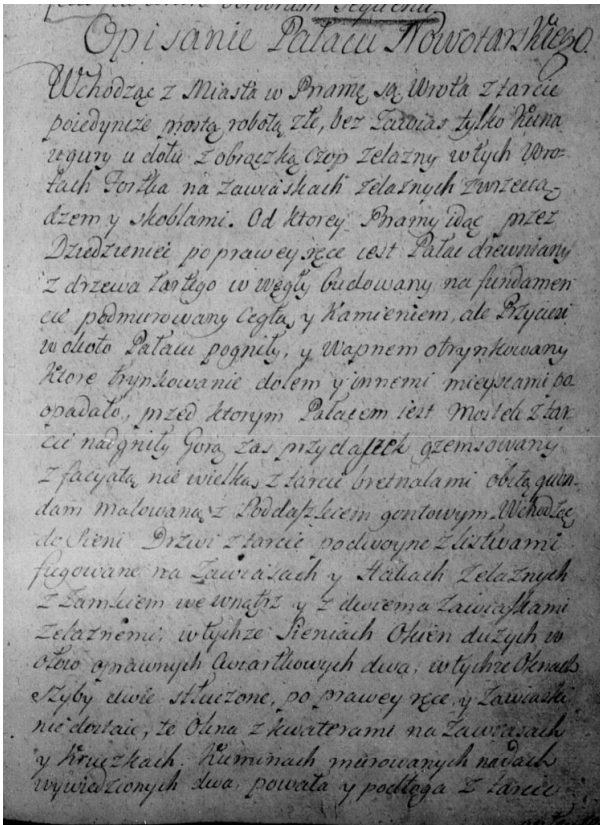 Opisanie Pałacu Nowotarskiego.
Wchodząc z Miasta w Bramę są Wrota z tarcic
poiedyncze prostą robotą złe, bez Zawias tylko Kuna
u gury u dołu z obrączką czop żelazny w tych Wro-
tach Fortka na zawiaskach żelaznych z wrzecią-
dzem y skoblami. Od ktorey Bramy idąc przez
Dziedzieniec po prawey ręce iest Pałac drewniany
z drzewa tartego w węgły budowany na fundamen
cie podmurowany Cegłą y Kamieniem, ale Przyciesi
w około Pałacu pogniły, y Wapnem otrynkowany
Ktore trynkowanie dolem y innemi mieyscami po
opadało, przed ktorym Pałacem iest Mostek z tar
cic nadgniły Gorą zas przydaszek gzemsowany
z facyatą nie wielką z tarcic bretnalami obitą
malowaną z Poddaszkiem gontowym. Wchodząc
do Sieni Drzwi z tarcic podwoyne z listwami
fugowane na Zawiasach y Hakach żelaznych
z Zamkiem we wnątrz y z dwiema Zawiaskami
żelaznemi, w tychże Sieniach Okien dużych w
ołow oprawnych Cwiartkowych dwa, w tychże Oknach
szyby dwie stłuczone, po prawey ręce, y Zawiaski
nie dostaie, te Okna z kwaterami na Zawiasach
y Kruczkach. Kuminach murowanych na dach
wywiedzionych dwa, powała y podłoga z tarcic